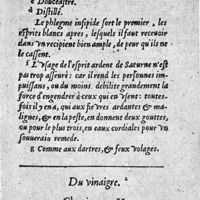 c Douceastre.
d Distillé.
Le phlegme insipide sort le premier, les
esprits blancs apres, lesquels il faut recevoir
dans vn recipient bien ample, de peur qu'ils ne
le cassent.
f L'vsage de l'esprit ardent de Saturne n'est
pas trop asseuré: car il rend les personnes im-
puissans, ou du moins debilite grandement la
force d'engendrer à ceux qui en vsent: toutes-
fois il y en a, qui aux fiévres ardantes & ma-
lignes, & en la peste, en donnent deux gouttes,
ou pour le plus trois, en eaux cordiales pour vn
souuerain remede.
g Comme aux dartres, & feux volages.
Du vinaigre. a